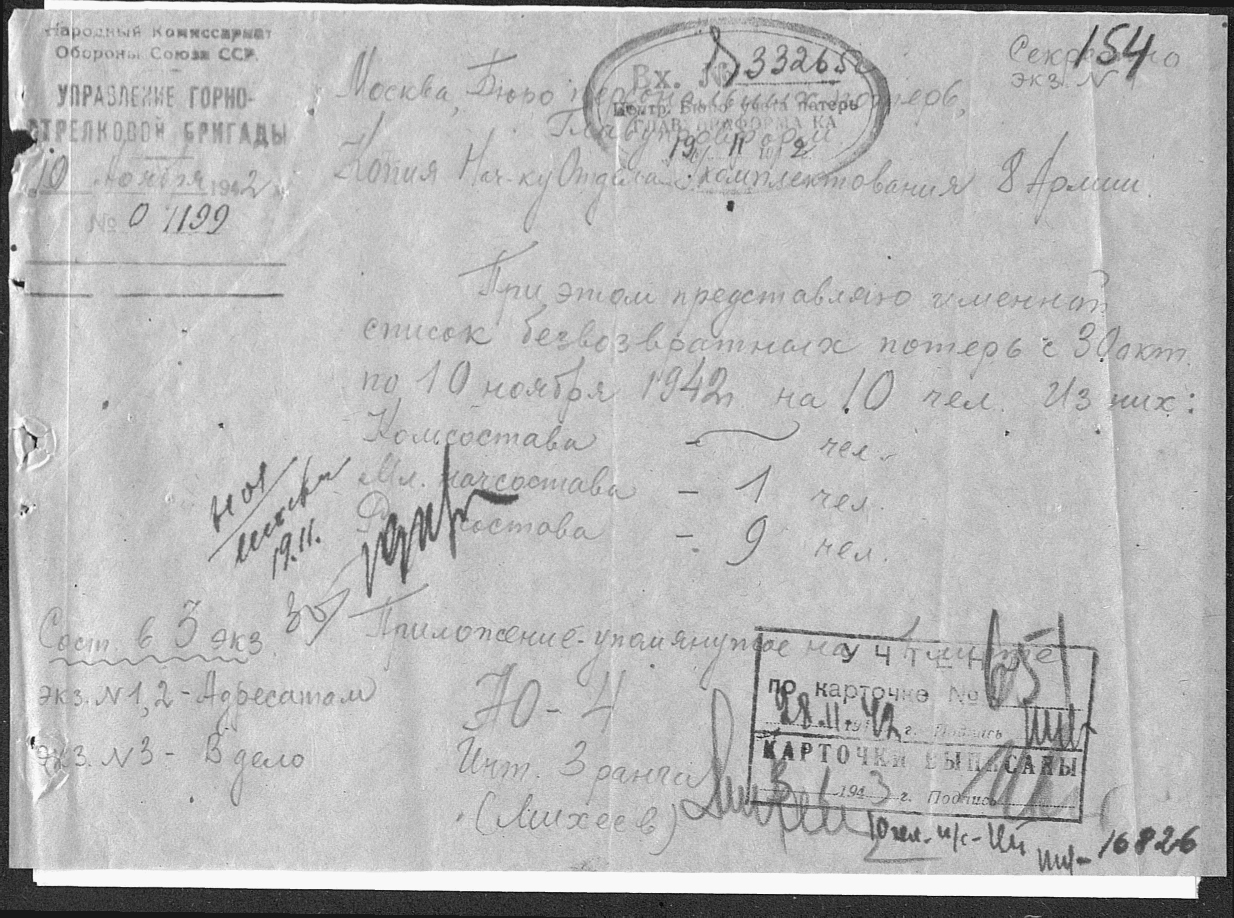 Народный Комиссариат
Обороны Союза ССР.
УПРАВЛЕНИЕ ГОРНО-
СТРЕЛКОВОЙ БРИГАДЫ
10 ноября 1942 г.
№ 0 1199
Секретно
экз. N 1
154
Вх. № 332652
Центр. Бюро учета потерь
ГЛАВУПРАФОРМА КА
19 11 1942
Москва, Бюро персональных потерь,
Главупраформ
Копия Нач-ку Отдела комплектования 8 Армии.
При этом представляю именной
список безвозвратных потерь с 30 окт.
по 10 ноября 1942 на 10 чел. Из них:
Комсостава — чел.
Мл. начсостава - 1 чел.
состава - 9 чел.
19.11.
Приложение-упомянутое на листе
Сост. в 3 экз.
экз. N 1,2 - Адресатам
экз. N 3 - В дело
Инт. 3 ранга
(Михеев)
УЧТЕНО
по карточке № 651
28.11.1942 г. Подпись
КАРТОЧКИ ВЫПИСАНЫ
1943 г. Подпись
10 чел.
16826